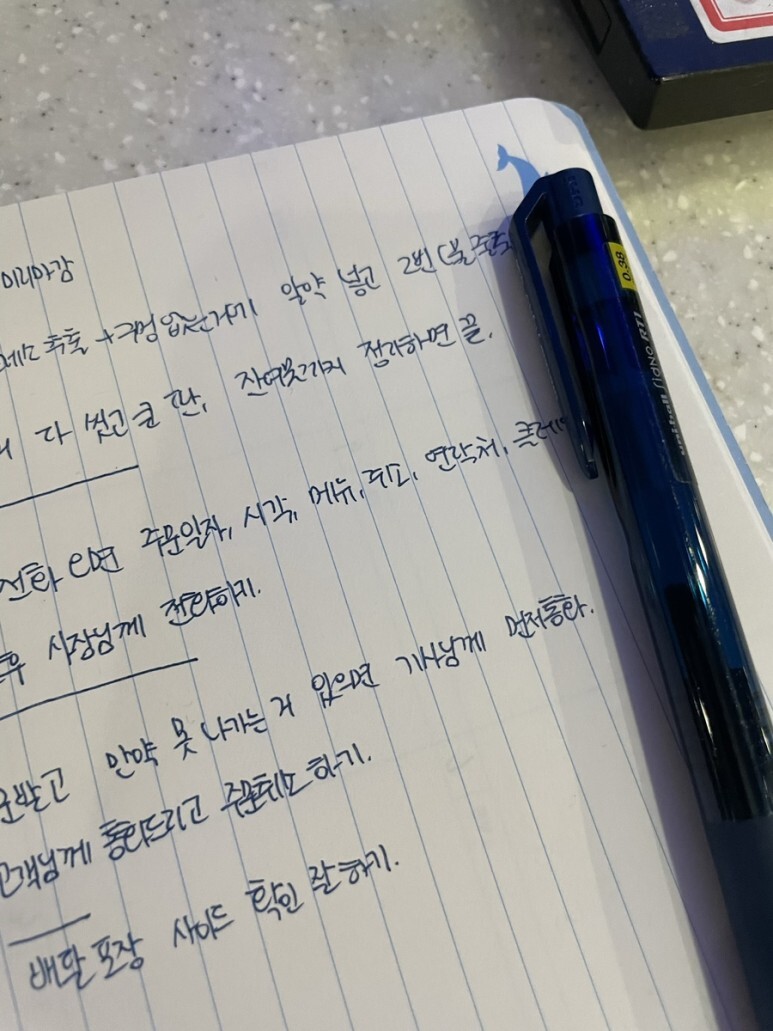 미리마감
추출 + 구멍 있는거기 알약 넣고 2번
다 씻고 큰 칸, 잔여물까지 정리하면 끝.
전화 오면 주문일자, 시각, 메뉴, 주소, 연락처, 클레
후 사장님께 전화하기.
만약 못 나가는 거 있으면 기사님께 먼저통화.
고객님께 통화드리고 주문취소 하기.
배달 포장 사이드 확인 잘 하기.
0.38
uni-ball SIGNO RT1